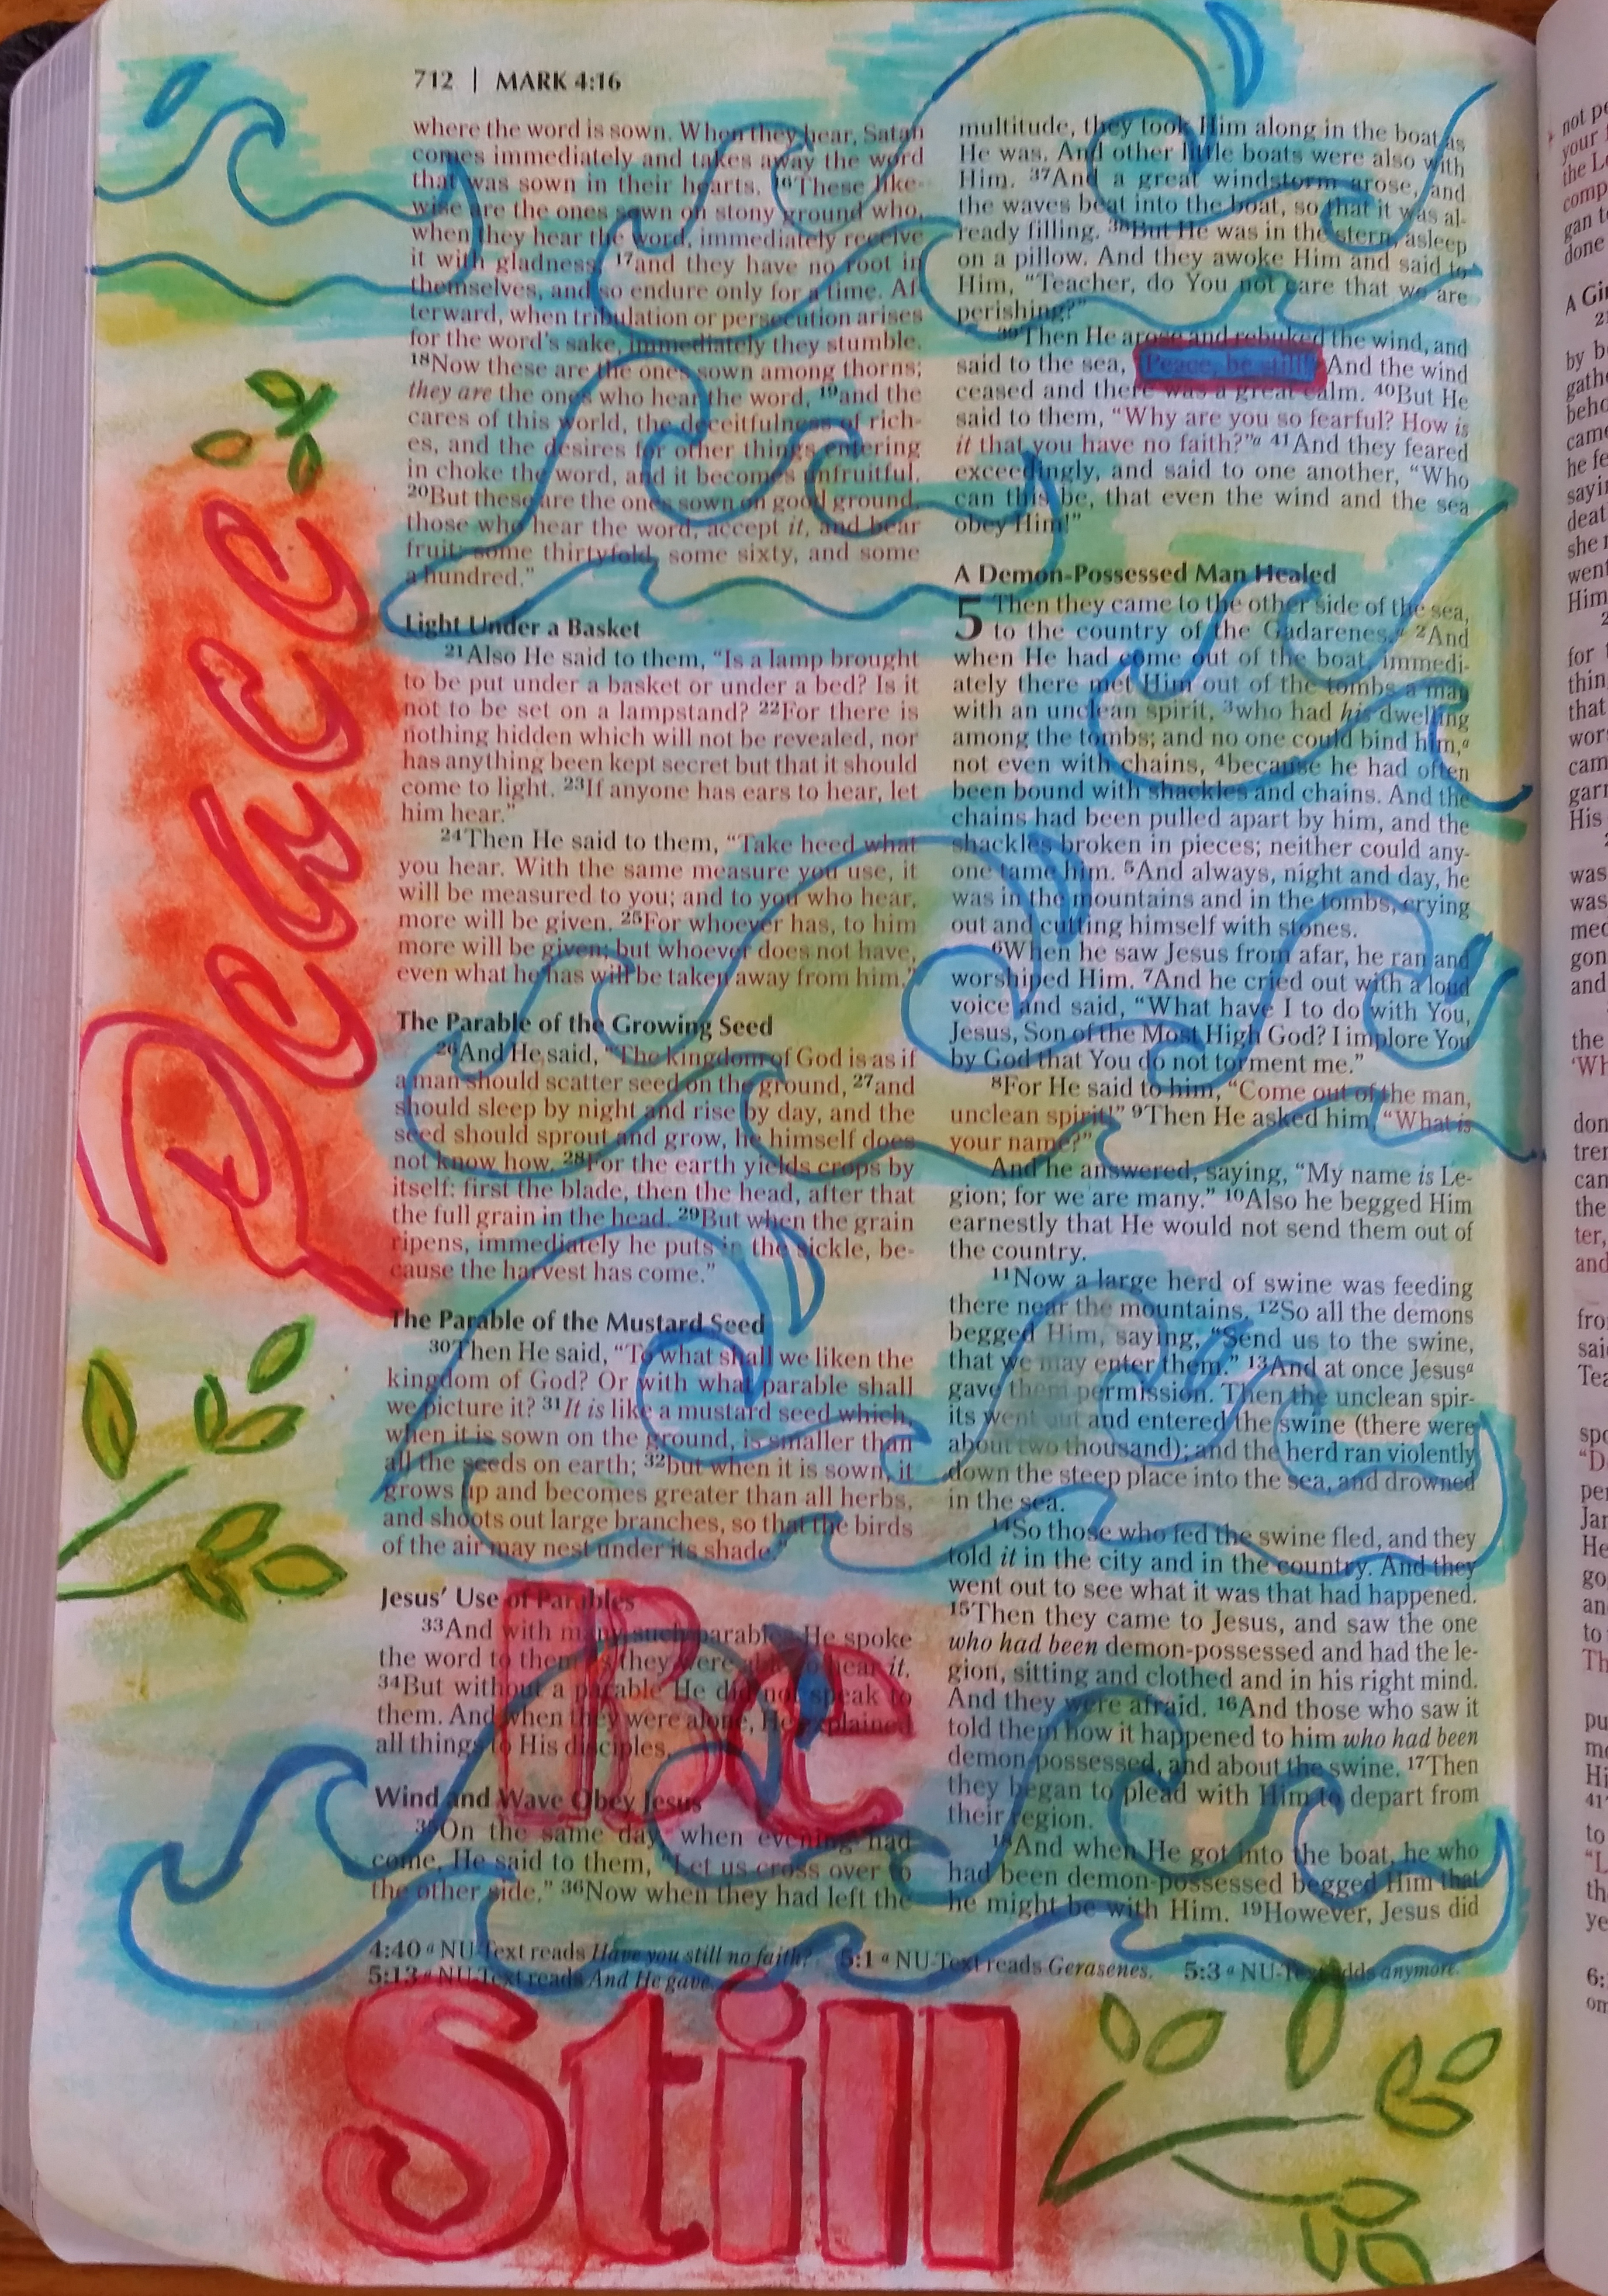 712 | MARK 4:16
where the word is sown. When they hear, Satan
comes immediately and takes away the word
that was sown in their hearts. 16These like-
wise are the ones sown on stony ground who,
when they hear the word, immediately receive
it with gladness; 17and they have no root in
themselves, and so endure only for a time. Af-
terward, when tribulation or persecution arises
for the word's sake, immediately they stumble.
18Now these are the ones sown among thorns;
they are the ones who hear the word, 19and the
cares of this world, the deceitfulness of rich-
es, and the desires for other things entering
in choke the word, and it becomes unfruitful.
20But these are the ones sown on good ground,
those who hear the word, accept it, and bear
fruit: some thirtyfold, some sixty, and some
a hundred."
Light Under a Basket
21Also He said to them, "Is a lamp brought
to be put under a basket or under a bed? Is it
not to be set on a lampstand? 22For there is
nothing hidden which will not be revealed, nor
has anything been kept secret but that it should
come to light. 23If anyone has ears to hear, let
him hear."
24Then He said to them, "Take heed what
you hear. With the same measure you use, it
will be measured to you; and to you who hear,
more will be given. 25For whoever has, to him
more will be given; but whoever does not have,
even what he has will be taken away from him."
The Parable of the Growing Seed
26And He said, "The kingdom of God is as if
a man should scatter seed on the ground, 27and
should sleep by night and rise by day, and the
seed should sprout and grow, he himself does
not know how. 28For the earth yields crops by
itself: first the blade, then the head, after that
the full grain in the head. 29But when the grain
ripens, immediately he puts in the sickle, be-
cause the harvest has come."
The Parable of the Mustard Seed
30Then He said, "To what shall we liken the
kingdom of God? Or with what parable shall
we picture it? 31It is like a mustard seed which,
when it is sown on the ground, is smaller than
all the seeds on earth; 32but when it is sown, it
grows up and becomes greater than all herbs,
and shoots out large branches, so that the birds
of the air may nest under its shade."
Jesus' Use of Parables
33And with many such parables He spoke
the word to them as they were able to hear it.
34But without a parable He did not speak to
them. And when they were alone, He explained
all things to His disciples.
Wind and Wave Obey Jesus
35On the same day, when evening had
come, He said to them, "Let us cross over to
the other side." 36Now when they had left the
multitude, they took Him along in the boat as
He was. And other little boats were also with
Him. 37And a great windstorm arose, and
the waves beat into the boat, so that it was al-
ready filling. 38But He was in the stern, asleep
on a pillow. And they awoke Him and said to
Him, "Teacher, do You not care that we are
perishing?"
39Then He arose and rebuked the wind, and
said to the sea, "Peace, be still!" And the wind
ceased and there was a great calm. 40But He
said to them, "Why are you so fearful? How is
it that you have no faith?"a 41And they feared
exceedingly, and said to one another, "Who
can this be, that even the wind and the sea
obey Him!"
A Demon-Possessed Man Healed
5 Then they came to the other side of the sea,
to the country of the Gadarenes.a 2And
when He had come out of the boat, immedi-
ately there met Him out of the tombs a man
with an unclean spirit, 3who had his dwelling
among the tombs; and no one could bind him,a
not even with chains, 4because he had often
been bound with shackles and chains. And the
chains had been pulled apart by him, and the
shackles broken in pieces; neither could any-
one tame him. 5And always, night and day, he
was in the mountains and in the tombs, crying
out and cutting himself with stones.
6When he saw Jesus from afar, he ran and
worshiped Him. 7And he cried out with a loud
voice and said, "What have I to do with You,
Jesus, Son of the Most High God? I implore You
by God that You do not torment me."
8For He said to him, "Come out of the man,
unclean spirit!" 9Then He asked him, "What is
your name?"
And he answered, saying, "My name is Le-
gion; for we are many." 10Also he begged Him
earnestly that He would not send them out of
the country.
11Now a large herd of swine was feeding
there near the mountains. 12So all the demons
begged Him, saying, "Send us to the swine,
that we may enter them." 13And at once Jesusa
gave them permission. Then the unclean spir-
its went out and entered the swine (there were
about two thousand); and the herd ran violently
down the steep place into the sea, and drowned
in the sea.
14So those who fed the swine fled, and they
told it in the city and in the country. And they
went out to see what it was that had happened.
15Then they came to Jesus, and saw the one
who had been demon-possessed and had the le-
gion, sitting and clothed and in his right mind.
And they were afraid. 16And those who saw it
told them how it happened to him who had been
demon-possessed, and about the swine. 17Then
they began to plead with Him to depart from
their region.
18And when He got into the boat, he who
had been demon-possessed begged Him that
he might be with Him. 19However, Jesus did
4:40 a NU-Text reads Have you still no faith? 5:1 a NU-Text reads Gerasenes. 5:3 a NU-Text adds anymore.
5:13 a NU-Text reads And He gave.
Peace
Be
Still